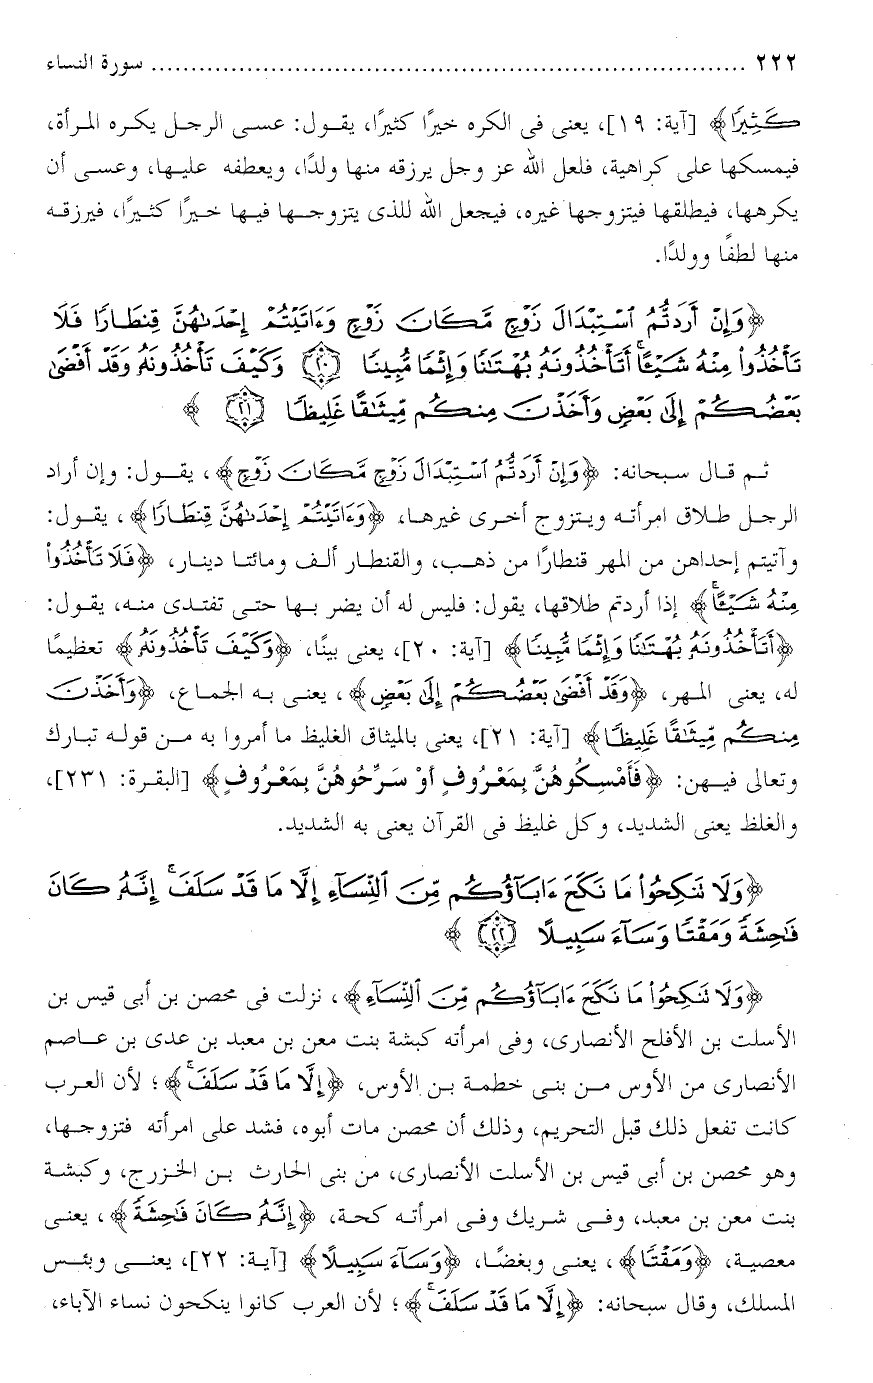 ٢٢٢ ........................................................................... سورة النساء
كَثِيرًا﴾ [آية: ١٩]، يعنى فى الكره خيرًا كثيرًا، يقول: عسى الرجل يكره المرأة،
فيمسكها على كراهية، فلعل الله عز وجل يرزقه منها ولدًا، ويعطفه عليها، وعسى أن
يكرهها، فيطلقها فيتزوجها غيره، فيجعل الله للذى يتزوجها فيها خيرًا كثيرًا، فيرزقه
منها لطفًا وولدًا.
﴿وَإِنْ أَرَدتُّمُ ٱسْتِبْدَالَ زَوْجٍ مَّكَانَ زَوْجٍ وَءَاتَيْتُمْ إِحْدَىٰهُنَّ قِنطَارًا فَلَا
تَأْخُذُوا۟ مِنْهُ شَيْـًٔا ۚ أَتَأْخُذُونَهُۥ بُهْتَـٰنًا وَإِثْمًا مُّبِينًا ﴿٢٠﴾ وَكَيْفَ تَأْخُذُونَهُۥ وَقَدْ أَفْضَىٰ
بَعْضُكُمْ إِلَىٰ بَعْضٍ وَأَخَذْنَ مِنكُم مِّيثَـٰقًا غَلِيظًا ﴿٢١﴾ ﴾
ثم قال سبحانه: ﴿وَإِنْ أَرَدتُّمُ ٱسْتِبْدَالَ زَوْجٍ مَّكَانَ زَوْجٍ﴾، يقول: وإن أراد
الرجل طلاق امرأته ويتزوج أخرى غيرها، ﴿وَءَاتَيْتُمْ إِحْدَىٰهُنَّ قِنطَارًا﴾، يقول:
وآتيتم إحداهن من المهر قنطارًا من ذهب، والقنطار ألف ومائتا دينار، ﴿فَلَا تَأْخُذُوا۟
مِنْهُ شَيْـًٔا ۚ﴾ إذا أردتم طلاقها، يقول: فليس له أن يضر بها حتى تفتدى منه، يقول:
﴿أَتَأْخُذُونَهُۥ بُهْتَـٰنًا وَإِثْمًا مُّبِينًا﴾ [آية: ٢٠]، يعنى بينًا، ﴿وَكَيْفَ تَأْخُذُونَهُۥ﴾ تعظيمًا
له، يعنى المهر، ﴿وَقَدْ أَفْضَىٰ بَعْضُكُمْ إِلَىٰ بَعْضٍ﴾، يعنى به الجماع، ﴿وَأَخَذْنَ
مِنكُم مِّيثَـٰقًا غَلِيظًا﴾ [آية: ٢١]، يعنى بالميثاق الغليظ ما أمروا به من قوله تبارك
وتعالى فيهن: ﴿فَأَمْسِكُوهُنَّ بِمَعْرُوفٍ أَوْ سَرِّحُوهُنَّ بِمَعْرُوفٍ﴾ [البقرة: ٢٣١]،
والغلظ يعنى الشديد، وكل غليظ فى القرآن يعنى به الشديد.
﴿وَلَا تَنكِحُوا۟ مَا نَكَحَ ءَابَآؤُكُم مِّنَ ٱلنِّسَآءِ إِلَّا مَا قَدْ سَلَفَ ۚ إِنَّهُۥ كَانَ
فَـٰحِشَةً وَمَقْتًا وَسَآءَ سَبِيلًا ﴿٢٢﴾ ﴾
﴿وَلَا تَنكِحُوا۟ مَا نَكَحَ ءَابَآؤُكُم مِّنَ ٱلنِّسَآءِ﴾، نزلت فى محصن بن أبى قيس بن
الأسلت بن الأفلح الأنصارى، وفى امرأته كبشة بنت معن بن معبد بن عدى بن عاصم
الأنصارى من الأوس من بنى خطمة بن الأوس، ﴿إِلَّا مَا قَدْ سَلَفَ ۚ﴾؛ لأن العرب
كانت تفعل ذلك قبل التحريم، وذلك أن محصن مات أبوه، فشد على امرأته فتزوجها،
وهو محصن بن أبى قيس بن الأسلت الأنصارى، من بنى الحارث بن الخزرج، وكبشة
بنت معن بن معبد، وفى شريك وفى امرأته كحة، ﴿إِنَّهُۥ كَانَ فَـٰحِشَةً﴾، يعنى
معصية، ﴿وَمَقْتًا﴾، يعنى وبغضًا، ﴿وَسَآءَ سَبِيلًا﴾ [آية: ٢٢]، يعنى وبئس
المسلك، وقال سبحانه: ﴿إِلَّا مَا قَدْ سَلَفَ ۚ﴾؛ لأن العرب كانوا ينكحون نساء الآباء،